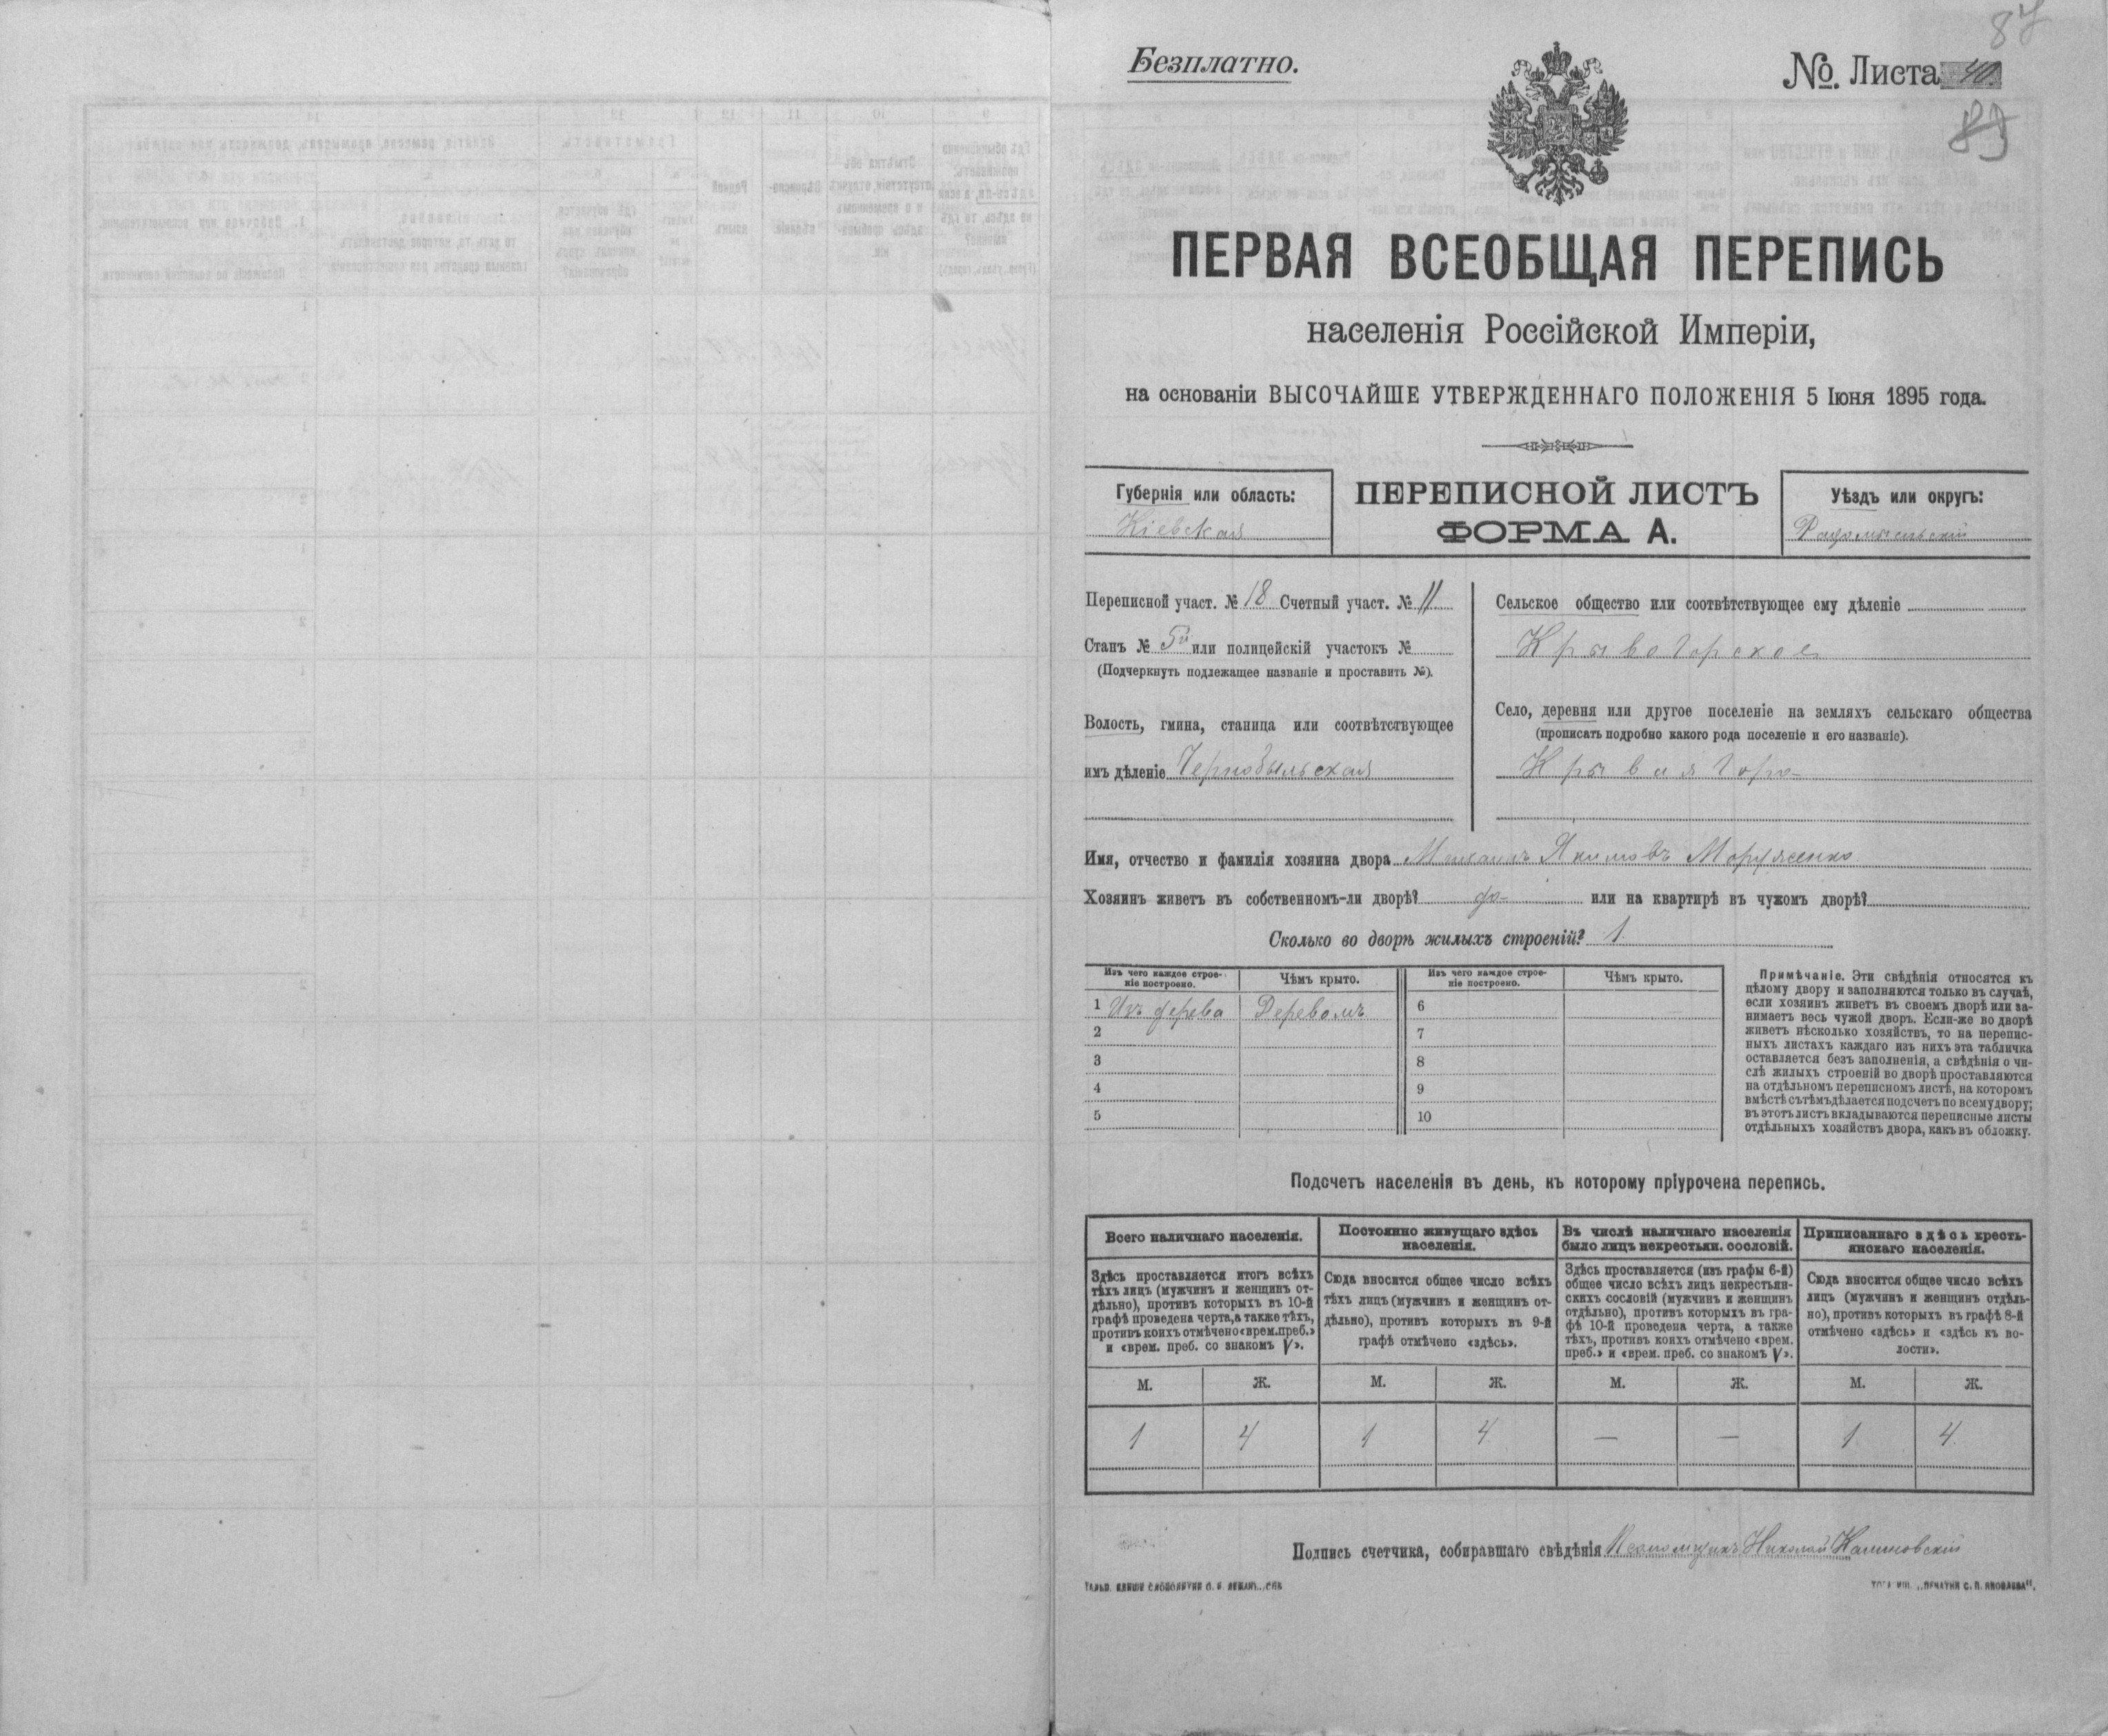 87
Безплатно.
№. Листа 40
89
ПЕРВАЯ ВСЕОБЩАЯ ПЕРЕПИСЬ
населенія Россійской Имперіи,
на основаніи ВЫСОЧАЙШЕ УТВЕРЖДЕННАГО ПОЛОЖЕНІЯ 5 Іюня 1895 года.
Губернія или область:
Кіевская
ПЕРЕПИСНОЙ ЛИСТЪ
ФОРМА А.
Уѣздъ или округъ:
Радомысльскій
Переписной участ. № 18 Счетный участ. № 11
Станъ № 5й или полицейскій участокъ №
(Подчеркнуть подлежащее названіе и проставить №).
Волость, гмина, станица или соотвѣтствующее
имъ дѣленіе Чернобыльская
Сельское общество или соотвѣтствующее ему дѣленіе
Крывогорское
Село, деревня или другое поселеніе на земляхъ сельскаго общества
(прописать подробно какого рода поселеніе и его названіе).
Крывая Гора
Имя, отчество и фамилія хозяина двора Михаилъ Якимовъ
Хозяинъ живетъ въ собственномъ-ли дворѣ? да или на квартирѣ въ чужомъ дворѣ?
Сколько во дворѣ жилыхъ строеній? 1
Изъ чего каждое строе-
ніе построено.
Чѣмъ крыто.
Изъ чего каждое строе-
ніе построено.
Чѣмъ крыто.
1 Изъ дерева Деревомъ 6
2 7
3 8
4 9
5 10
Примѣчаніе. Эти свѣдѣнія относятся къ
цѣлому двору и заполняются только въ случаѣ,
если хозяинъ живетъ въ своемъ дворѣ или за-
нимаетъ весь чужой дворъ. Если-же во дворѣ
живетъ нѣсколько хозяйствъ, то на перепис-
ныхъ листахъ каждаго изъ нихъ эта табличка
оставляется безъ заполненія, а свѣдѣнія о чи-
слѣ жилыхъ строеній во дворѣ проставляются
на отдѣльномъ переписномъ листѣ, на которомъ
вмѣстѣ съ тѣмъ дѣлается подсчетъ по всему двору;
въ этотъ листъ вкладываются переписные листы
отдѣльныхъ хозяйствъ двора, какъ въ обложку.
Подсчетъ населенія въ день, къ которому пріурочена перепись.
Всего наличнаго населенія.
Здѣсь проставляется итогъ всѣхъ
тѣхъ лицъ (мужчинъ и женщинъ от-
дѣльно), противъ которыхъ въ 10-й
графѣ проведена черта, а также тѣхъ,
противъ коихъ отмѣчено «врем. преб.»
и «врем. преб. со знакомъ V».
Постоянно живущаго здѣсь
населенія.
Сюда вносится общее число всѣхъ
тѣхъ лицъ (мужчинъ и женщинъ от-
дѣльно), противъ которыхъ въ 9-й
графѣ отмѣчено «здѣсь».
Въ числѣ наличнаго населенія
было лицъ некрестьян. сословій.
Здѣсь проставляется (изъ графы 6-й)
общее число всѣхъ лицъ некрестьян-
скихъ сословій (мужчинъ и женщинъ
отдѣльно), противъ которыхъ въ гра-
фѣ 10-й проведена черта, а также
тѣхъ, противъ коихъ отмѣчено «врем.
преб.» и «врем. преб. со знакомъ V».
Приписаннаго здѣсь кресть-
янскаго населенія.
Сюда вносится общее число всѣхъ
лицъ (мужчинъ и женщинъ отдѣль-
но), противъ которыхъ въ графѣ 8-й
отмѣчено «здѣсь» и «здѣсь къ во-
лости».
М. Ж. М. Ж. М. Ж. М. Ж.
1 4 1 4 — — 1 4
Подпись счетчика, собиравшаго свѣдѣнія Псаломщикъ Николай Калиновскій